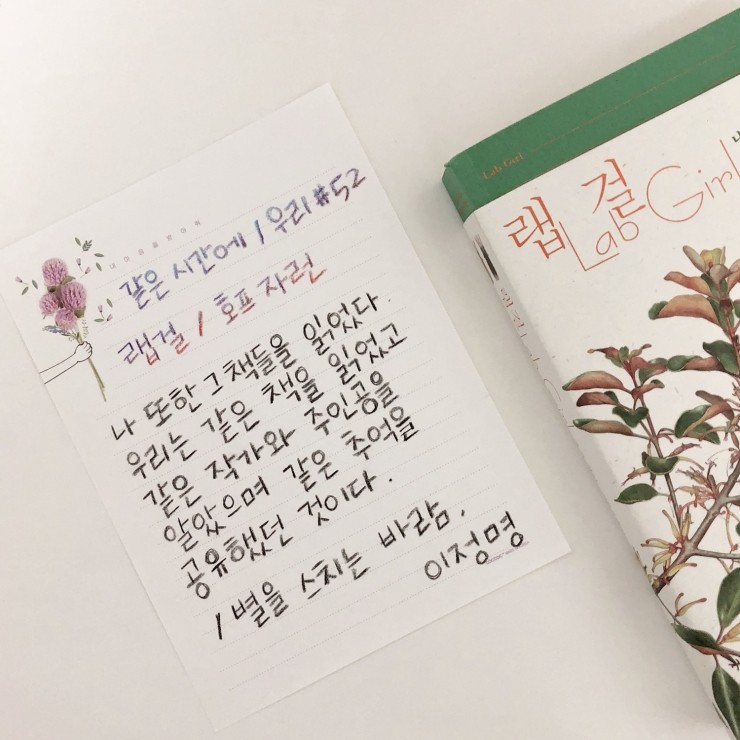 같은 시간에 / 우리 #52
랩걸 / 호프 자런
나 또한 그 책들을 읽었다.
우리는 같은 책을 읽었고
같은 작가와 주인공을
알았으며 같은 추억을
공유했던 것이다.
/ 별을 스치는 바람,
이정명
Lab Girl
랩 걸
Lab Girl